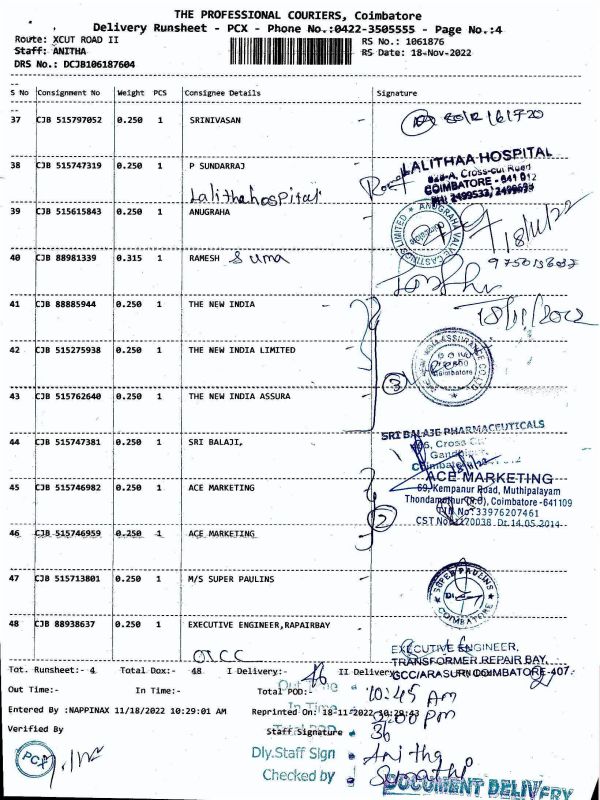 THE PROFESSIONAL COURIERS, Coimbatore
Delivery Runsheet - PCX - Phone No.:0422-3505555 - Page No.:4
Route: XCUT ROAD II RS No.: 1061876
Staff: ANITHA RS Date: 18-Nov-2022
DRS No.: DCJB106187604
S No Consignment No Weight PCS Consignee Details Signature
37 CJB 515797052 0.250 1 SRINIVASAN -
38 CJB 515747319 0.250 1 P SUNDARRAJ -
LALITHAA HOSPITAL
Cross-cut Road
COIMBATORE - 641 012
PH: 2499533, 2499694
Lalitha hospital
39 CJB 515615843 0.250 1 ANUGRAHA -
ANUGRAHA VALVE CASTINGS LIMITED
18/11/22
40 CJB 88981339 0.315 1 RAMESH Suma -
41 CJB 88885944 0.250 1 THE NEW INDIA -
18/11/2022
42 CJB 515275938 0.250 1 THE NEW INDIA LIMITED -
Coimbatore
3
43 CJB 515762640 0.250 1 THE NEW INDIA ASSURA -
44 CJB 515747381 0.250 1 SRI BALAJI, -
SRI BALAJE PHARMACEUTICALS
45 CJB 515746982 0.250 1 ACE MARKETING -
ACE MARKETING
69, Kempanur Road, Muthipalayam
Thondamuthur (P.O), Coimbatore - 641109
TIN No: 33976207461
CST No: 1170038 Dt. 14.05.2014
2
46 CJB 515746959 0.250 1 ACE MARKETING -
47 CJB 515713801 0.250 1 M/S SUPER PAULINS -
SUPER PAULINS
COIMBATORE
48 CJB 88938637 0.250 1 EXECUTIVE ENGINEER,RAPAIRBAY -
EXECUTIVE ENGINEER,
TRANSFORMER REPAIR BAY,
GCC/ARASUR/COIMBATORE-407.
Tot. Runsheet:- 4 Total Dox:- 48 I Delivery:- 46 II Delivery
Out Time:- In Time:- Total POD:-
Out Time 10:45 Am
Entered By :NAPPINAX 11/18/2022 10:29:01 AM Reprinted On: 18-11-2022 10:29:43
In Time 3:00 pm
Verified By Staff Signature
Total POD 36
Dly.Staff Sign Anitha
PCX
Checked by
DOCUMENT DELIVERY